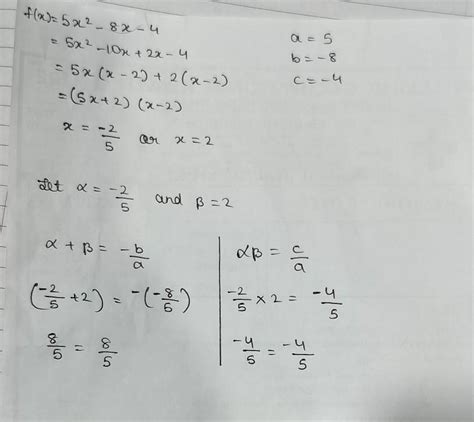 f(x) = 5x² - 8x - 4
= 5x² - 10x + 2x - 4
= 5x (x - 2) + 2 (x - 2)
= (5x + 2) (x - 2)
x = -2/5 or x = 2
a = 5
b = -8
c = -4
Let α = -2/5 and β = 2
α + β = -b/a
(-2/5 + 2) = -(-8/5)
8/5 = 8/5
αβ = c/a
-2/5 × 2 = -4/5
-4/5 = -4/5